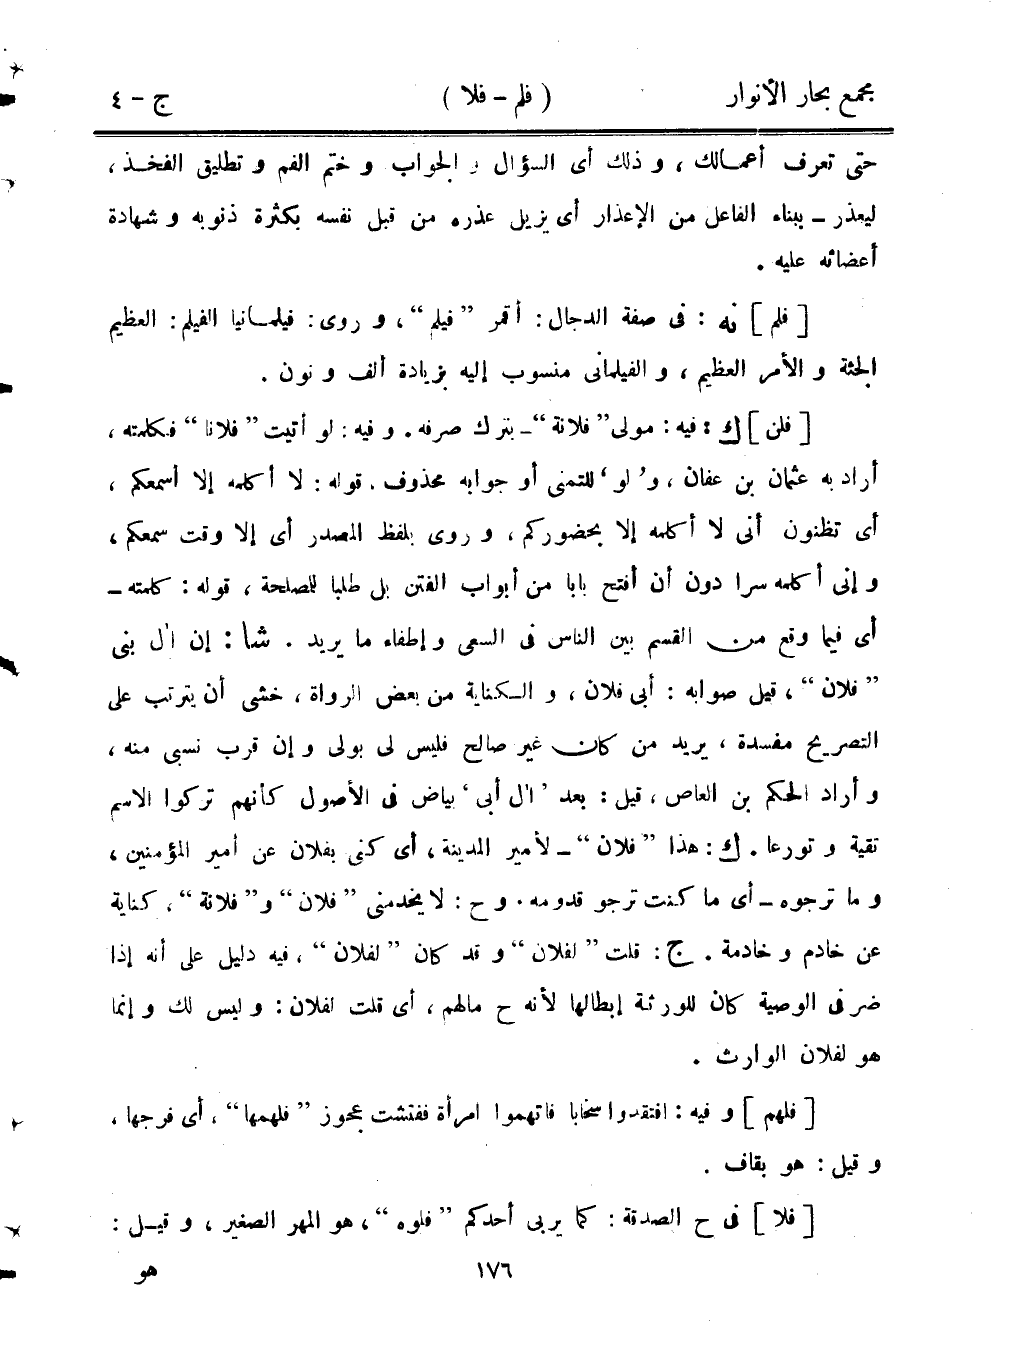 مجمع بحار الأنوار ( فلم – فلا ) ج – ٤
حتى تعرف أعمالك ، و ذلك أى السؤال و الجواب و ختم الفم و تطليق الفخذ ،
ليعذر – ببناء الفاعل من الإعذار أى يزيل عذره من قبل نفسه بكثرة ذنوبه و شهادة
أعضائه عليه .
[ فلم ] نه : فى صفة الدجال : أقمر ”فيلم“ ، و روى : فيلمانيا الفيلم : العظيم
الجثة و الأمر العظيم ، و الفيلمانى منسوب إليه بزيادة ألف و نون .
[ فلن ] ك : فيه : مولى ”فلانة“ – بترك صرفه . و فيه : لو أتيت ”فلانا“ فكلمته ،
أراد به عثمان بن عفان ، و ’لو‘ للتمنى أو جوابه محذوف . قوله : لا أكلمه إلا أسمعكم ،
أى تظنون أنى لا أكلمه إلا بحضوركم ، و روى بلفظ المصدر أى إلا وقت سمعكم ،
و إنى أكلمه سرا دون أن أفتح بابا من أبواب الفتن بل طلبا للصلحة ، قوله : كلمته –
أى فيما وقع من القسم بين الناس فى السعى و إطفاء ما يريد . شا : إن اٰل بنى
”فلان“ ، قيل صوابه : أبى فلان ، و الكناية من بعض الرواة ، خشى أن يترتب على
التصريح مفسدة ، يريد من كان غير صالح فليس لى بولى و إن قرب نسبى منه ،
و أراد الحكم بن العاص ، قيل : بعد ’اٰل أبى‘ بياض فى الأصول كأنهم تركوا الاسم
تقية و تورعا . ك : هذا ”فلان“ – لأمير المدينة ، أى كنى بفلان عن أمير المؤمنين ،
و ما ترجوه – أى ما كنت ترجو قدومه . و ح : لا يخدمنى ”فلان“ و ”فلانة“ ، كناية
عن خادم و خادمة . ج : قلت ”لفلان“ و قد كان ”لفلان“ ، فيه دليل على أنه إذا
ضر فى الوصية كان للورثة إبطالها لأنه ح مالهم ، أى قلت لفلان : و ليس لك و إنما
هو لفلان الوارث .
[ فلهم ] و فيه : افتقدوا سخابا فاتهموا امرأة ففتشت عجوز ”فلهمها“ ، أى فرجها ،
و قيل : هو بقاف .
[ فلا ] فى ح الصدقة : كما يربى أحدكم ”فلوه“ ، هو المهر الصغير ، و قيل :
١٧٦ هو